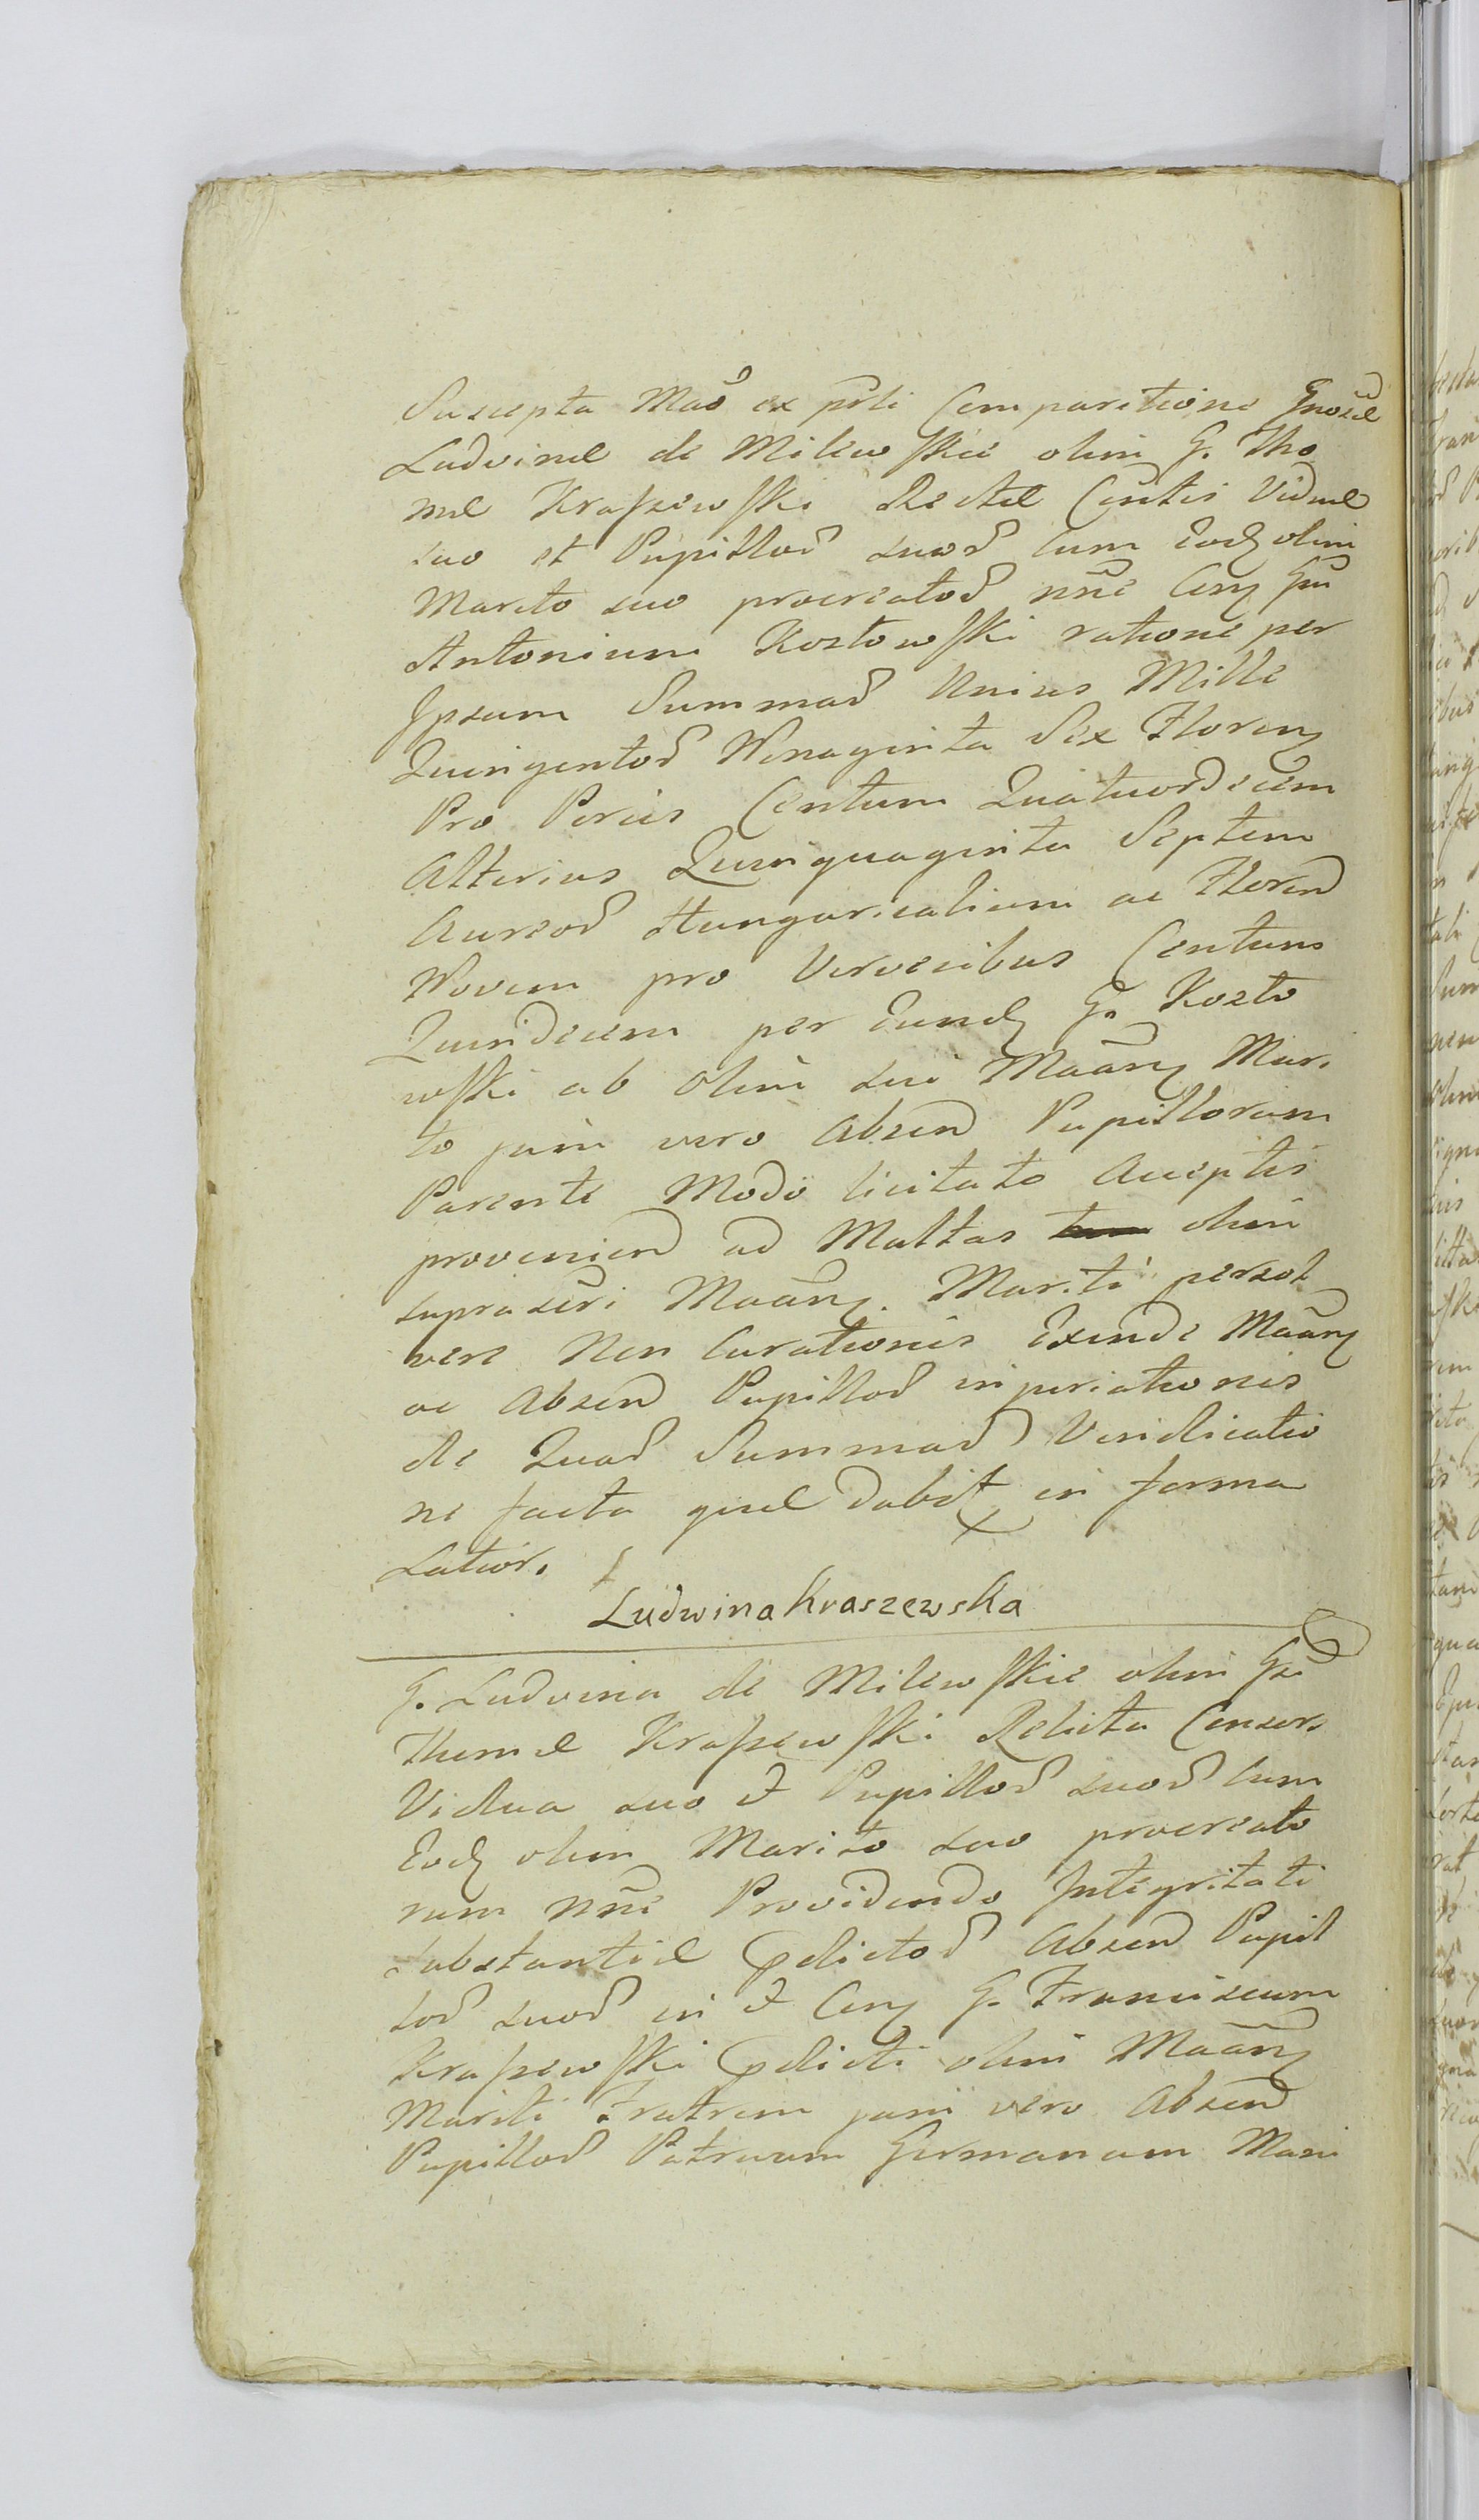 Suscepta Mãó ex pr̃ti Comparitione Gnosæ
Ludvinæ de Milewskie olim G. Tho
mæ Kraszewski Rectæ Cõntis Viduæ
suo et Pupillor̃ suor̃ cum Eodȝ olim
Marito suo procreator̃ nñe Conȝ Gñ
Antonium Kozłowski ratione per
Ipsum Summar̃ Unius Mille
Quingentor̃ Nonaginta Sex Florenȝ
Pro Porcis Centum Quatuordecim
Alterius Quinquaginta Septem
Aureor̃ Hungaricalium ac Floren̄
Novem pro Vervecibus Centum
Quindecim per Eundȝ G. Kozło
wski ab olim sui Mãanȝ Mari
to jam vero Absen̄ Pupillorum
Parente Modo licitato Acceptis
provenien̄ ad Multas olim
suprascri Mãanȝ. Mariti persol
vere Non Curationis Exinde Mãanȝ
ac Absen̄ Pupillor̃ injuriationis
de Quar̃ Summar̃ Vindicatio
ne facta quæ dabit̃ in forma
Latior.
Ludwina Kraszewska
G. Ludvina de Milewskie olim Gsi
Thomæ Kraszewski Relicta Consors
Vidua suo et Pupillor̃ suor̃ cum
Eodȝ olim Marito suo procreato
rum Nñe Providendo Integritati
substantiæ p̄dictor̃ Absen̄ Pupil
lor̃ suor̃ in et Conȝ G. Franciscum
Kraszewski p̄dicti olim Mãanȝ
Mariti Fratrem jam vero Absen̄
Pupillor̃ Patruum Germanum Mani